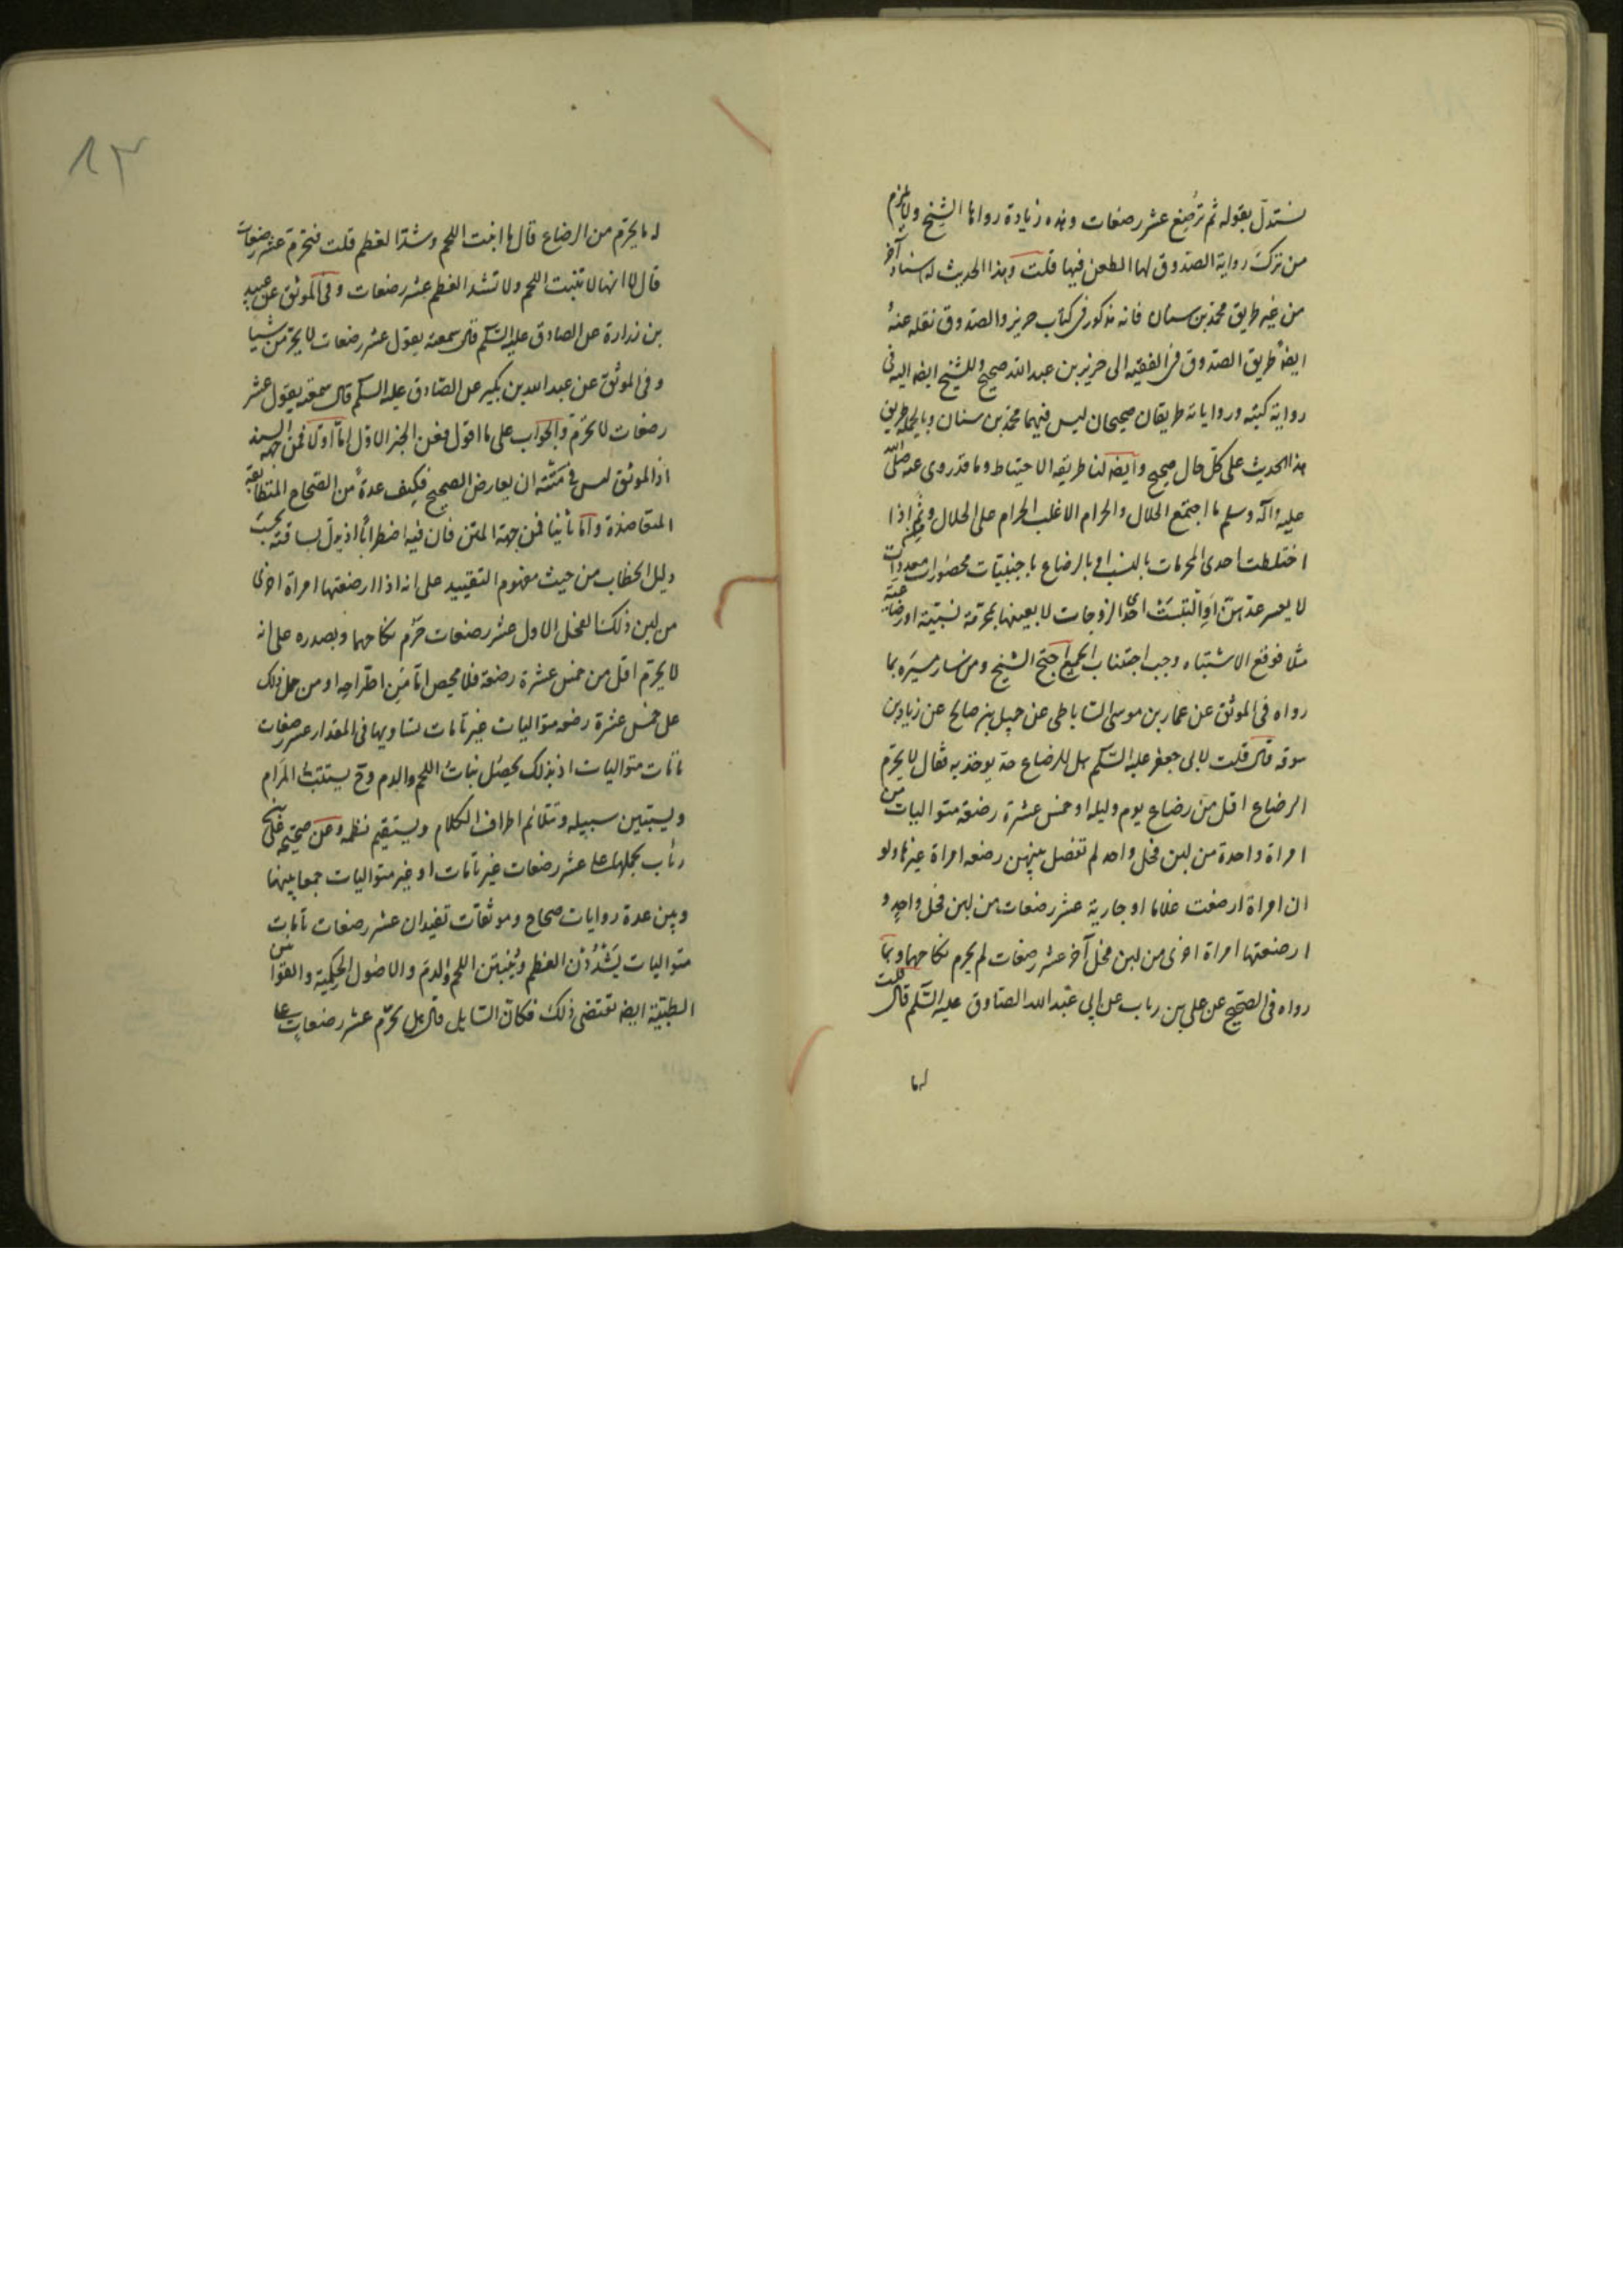 نستدل بقوله ثم ترضع عشر رضعات وهذه زيادة رواها الشيخ ولا يلزم
من ترك رواية الصدوق لها الطعن فيها قلت وهذا الحديث له اسناد آخر
من غير طريق محمد بن سنان فانه مذكور فى كتاب حريز والصدوق نقله عنه
ايضا طريق الصدوق فى الفقيه الى حريز بن عبد الله صحيح وللشيخ ايضا اليه فى
رواية كتبه ورواياته طريقان صحيحان ليس فيهما محمد بن سنان وبالجملة طريق
هذا الحديث على كل حال صحيح وايضا لنا طريقه الاحتياط وما قد روى عنه صلى الله
عليه وآله وسلم ما اجتمع الحلال والحرام الا غلب الحرام على الحلال ومن ثم اذا
اختلطت احدى المحرمات بالنسب او بالرضاع باجنبيات محصورات معدودات
لا يعسر عدهن او التبست احدى الزوجات لا بعينها بمحرمة نسبية او رضاعية
مثلا فوقع الاشتباه وجب اجتناب الجميع احتج الشيخ ومن سار مسيره بما
رواه فى الموثق عن عمار بن موسى الساباطى عن جميل بن صالح عن زياد بن
سوقه قال قلت لابى جعفر عليه السلم هل للرضاع حد يوخذ به فقال لا يحرم
الرضاع اقل من رضاع يوم وليله او خمس عشرة رضعة متواليات من
امراة واحدة من لبن فحل واحد لم تفصل بينهن رضعه امراة غيرها ولو
ان امراة ارضعت غلاما او جارية عشر رضعات من لبن فحل واحد و
ارضعتها امراة اخرى من لبن فحل آخر عشر رضعات لم يحرم نكاحهما وبما
رواه فى الصحيح عن على بن رياب عن ابى عبد الله الصادق عليه السلم قال قلت
له ما
له ما يحرم من الرضاع قال ما انبت اللحم وشد العظم قلت فتحرم عشر رضعات
قال لا انها لا تنبت اللحم ولا تشد العظم عشر رضعات وفى الموثق عن عبيد
بن زرارة عن الصادق عليه السلم قال سمعته يقول عشر رضعات لا يحرمن شيا
وفى الموثق عن عبد الله بن بكير عن الصادق عليه السلم قال سمعته يقول عشر
رضعات لا تحرم والجواب على ما اقول فعن الخبر الاول اما اولا فمن جهة السند
اذ الموثق ليس فى منته ان يعارض الصحيح فكيف عدة من الصحاح المتطابقة
المتعاضدة واما ثانيا فمن جهة المتن فان فيه اضطرابا اذ يدل بساقته بحسب
دليل الخطاب من حيث مفهوم التقييد على انه اذا ارضعتها امراة اخرى
من لبن ذلك الفحل الاول عشر رضعات حرم نكاحهما وبصدره على انه
لا يحرم اقل من خمس عشرة رضعة فلا محيص اما من اطراحه او من حمل ذلك
على خمس عشرة رضعه متواليات غير تامات تساويها فى المقدار عشر رضعات
تامات متواليات اذ بذلك يحصل نبات اللحم والدم وح يستتب المرام
ويستبين سبيله وتتلائم اطراف الكلام ويستقيم نظمه وعن صحيحة على بن
رئاب بحملها على عشر رضعات غير تامات او غير متواليات جمعا بينها
وبين عدة روايات صحاح وموثقات تفيد ان عشر رضعات تامات
متواليات يشددن العظم وينبتن اللحم والدم والاصول الحكمية والقوانين
الطبية ايضا تقتضى ذلك فكان السايل قال هل يحرم عشر رضعات على